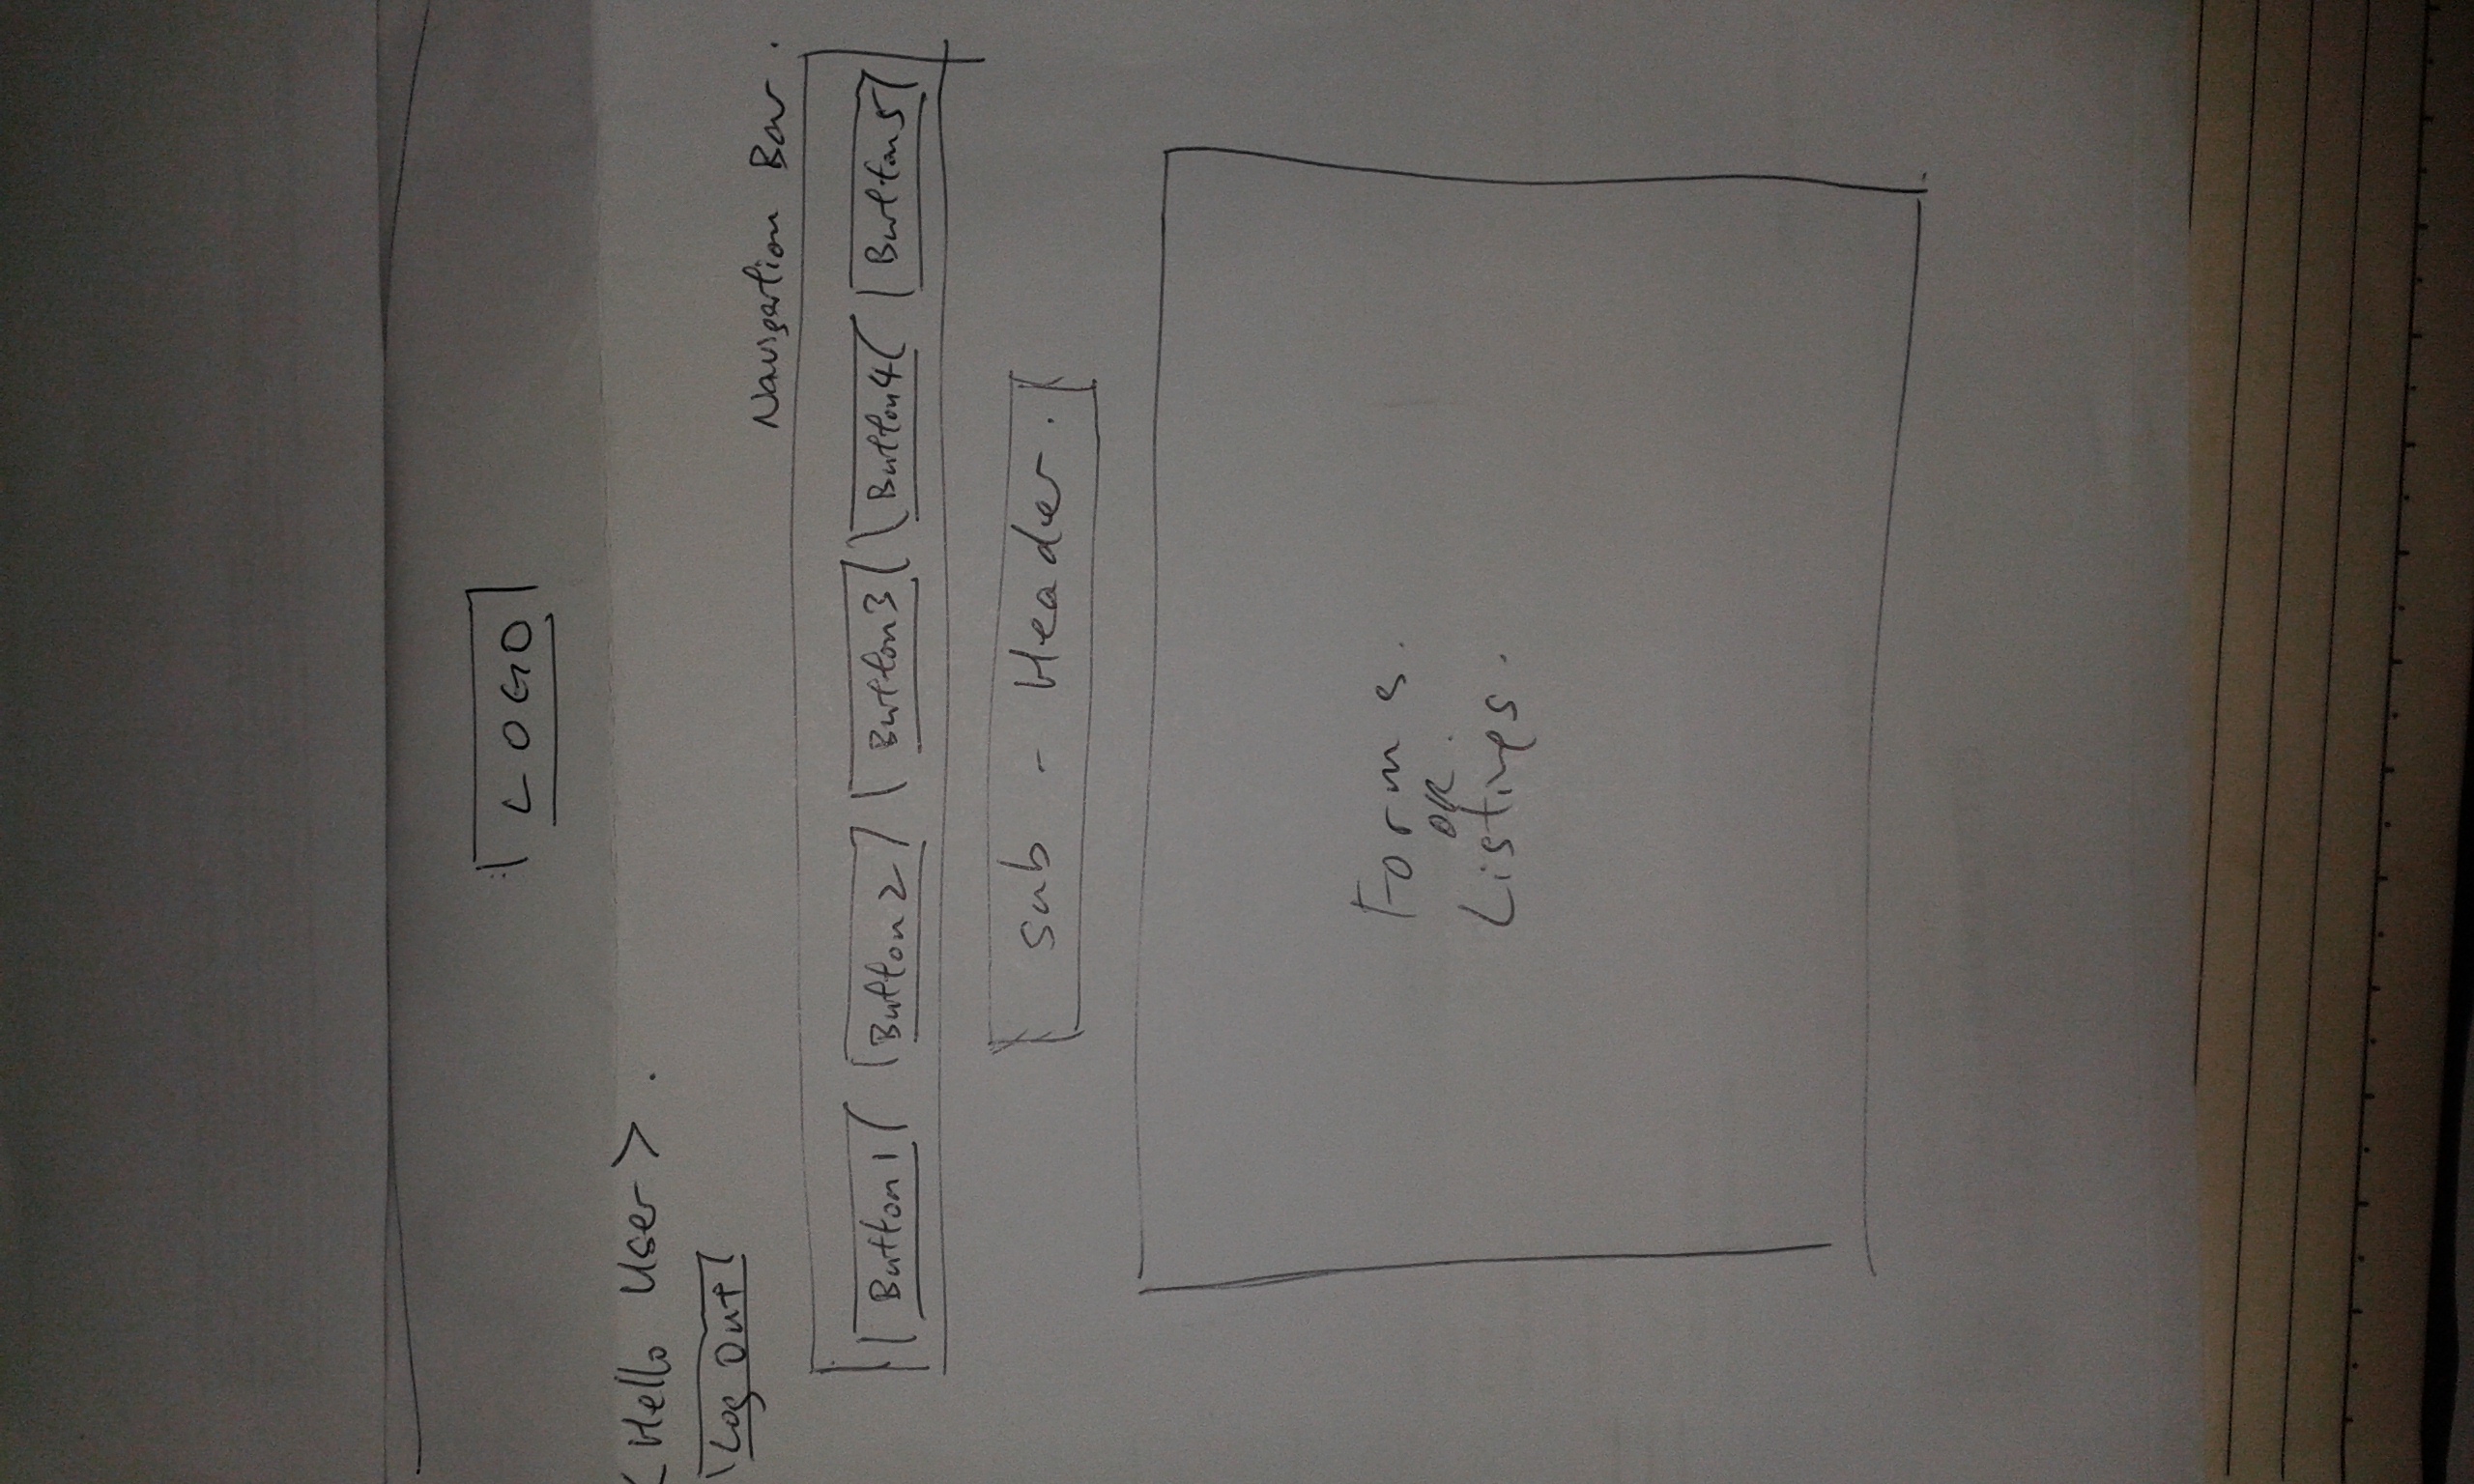 LOGO
<Hello User> .
Log Out
Navigation Bar .
Button1 Button2 Button3 Button4 Button5
Sub - Header .
Forms .
OR .
Listings .